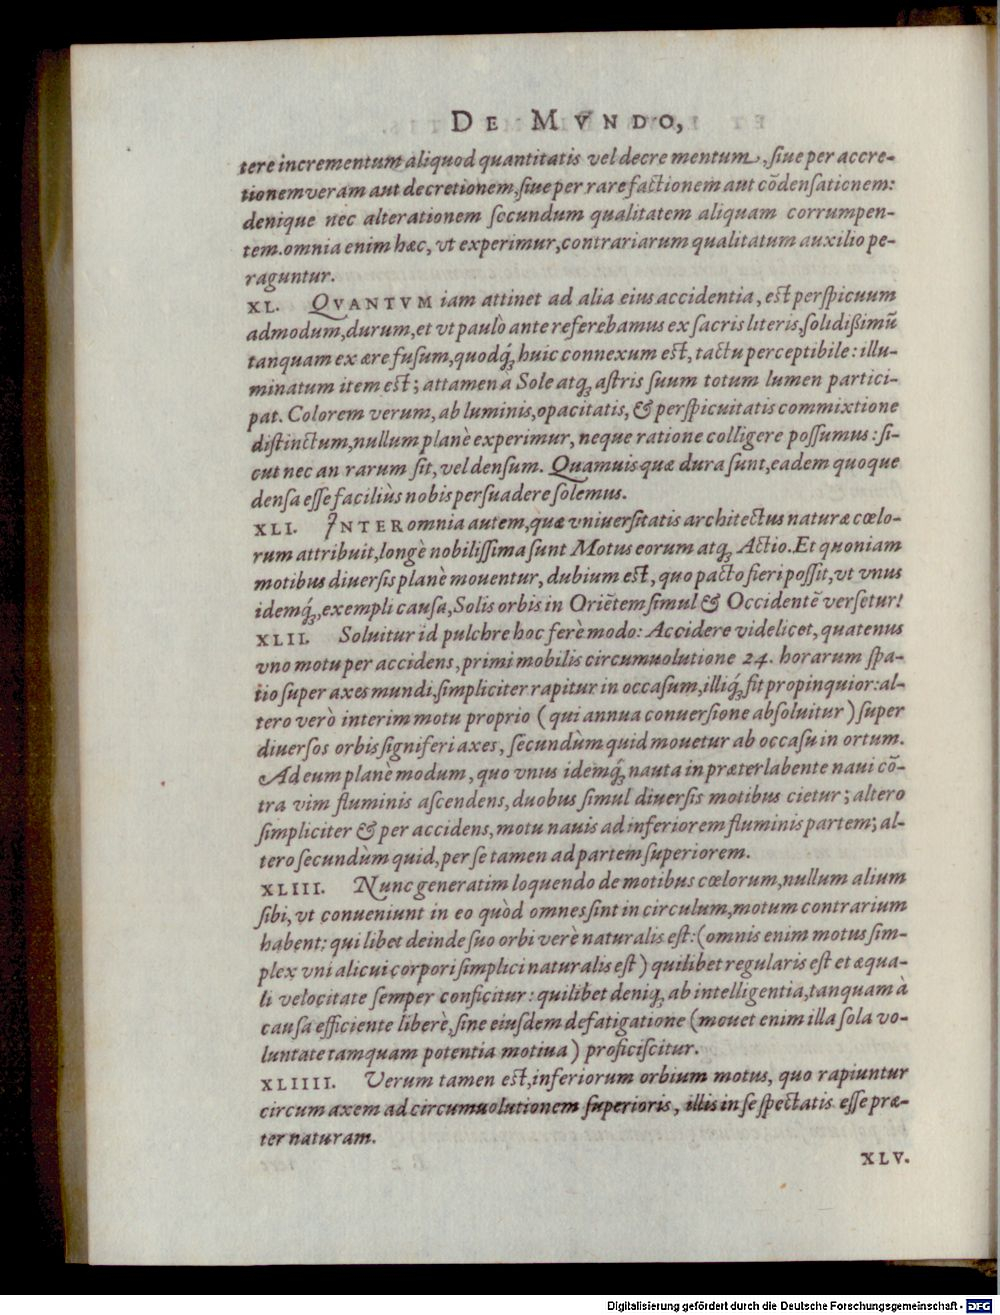 DE MVNDO,
tere incrementum aliquod quantitatis vel decrementum, ſiue per accre-
tionem veram aut decretionem, ſiue per rarefactionem aut cõdenſationem:
denique nec alterationem ſecundum qualitatem aliquam corrumpen-
tem. omnia enim hæc, vt experimur, contrariarum qualitatum auxilio pe-
raguntur.
XL. QVANTVM iam attinet ad alia eius accidentia, eſt perſpicuum
admodum, durum, et vt paulò ante referebamus ex ſacris literis, ſolidißimũ
tanquam ex ære fuſum, quodq́ꝫ huic connexum eſt, tactu perceptibile: illu-
minatum item eſt; attamen à Sole atqꝫ aſtris ſuum totum lumen partici-
pat. Colorem verum, ab luminis, opacitatis, & perſpicuitatis commixtione
diſtinctum, nullum planè experimur, neque ratione colligere poſſumus: ſi-
cut nec an rarum ſit, vel denſum. Quamuis quæ dura ſunt, eadem quoque
denſa eſſe faciliùs nobis perſuadere ſolemus.
XLI. INTER omnia autem, quæ vniuerſitatis architectus naturæ cœlo-
rum attribuit, longè nobiliſſima ſunt Motus eorum atqꝫ Actio. Et quoniam
motibus diuerſis planè mouentur, dubium eſt, quo pacto fieri poſſit, vt vnus
idemq́ꝫ, exempli cauſa, Solis orbis in Oriẽtem ſimul & Occidentẽ verſetur?
XLII. Soluitur id pulchre hoc ferè modo: Accidere videlicet, quatenus
vno motu per accidens, primi mobilis circumuolutione 24. horarum ſpa-
tio ſuper axes mundi, ſimpliciter rapitur in occaſum, illiq́ꝫ fit propinquior: al-
tero verò interim motu proprio (qui annua conuerſione abſoluitur) ſuper
diuerſos orbis ſigniferi axes, ſecundùm quid mouetur ab occaſu in ortum.
Ad eum planè modum, quo vnus idemq́ꝫ nauta in præterlabente naui cõ-
tra vim fluminis aſcendens, duobus ſimul diuerſis motibus cietur; altero
ſimpliciter & per accidens, motu nauis ad inferiorem fluminis partem; al-
tero ſecundùm quid, per ſe tamen ad partem ſuperiorem.
XLIII. Nunc generatim loquendo de motibus cœlorum, nullum alium
ſibi, vt conueniunt in eo quòd omnes ſint in circulum, motum contrarium
habent: quilibet deinde ſuo orbi verè naturalis eſt: (omnis enim motus ſim-
plex vni alicui corpori ſimplici naturalis eſt) quilibet regularis eſt et æqua-
li velocitate ſemper conficitur: quilibet deniqꝫ ab intelligentia, tanquam à
cauſa efficiente liberè, ſine eiuſdem defatigatione (mouet enim illa ſola vo-
luntate tamquam potentia motiua) proficiſcitur.
XLIIII. Verum tamen eſt, inferiorum orbium motus, quo rapiuntur
circum axem ad circumuolutionem ſuperioris, illis in ſe ſpectatis eſſe præ-
ter naturam.
XLV.
Digitalisierung gefördert durch die Deutsche Forschungsgemeinschaft - DFG